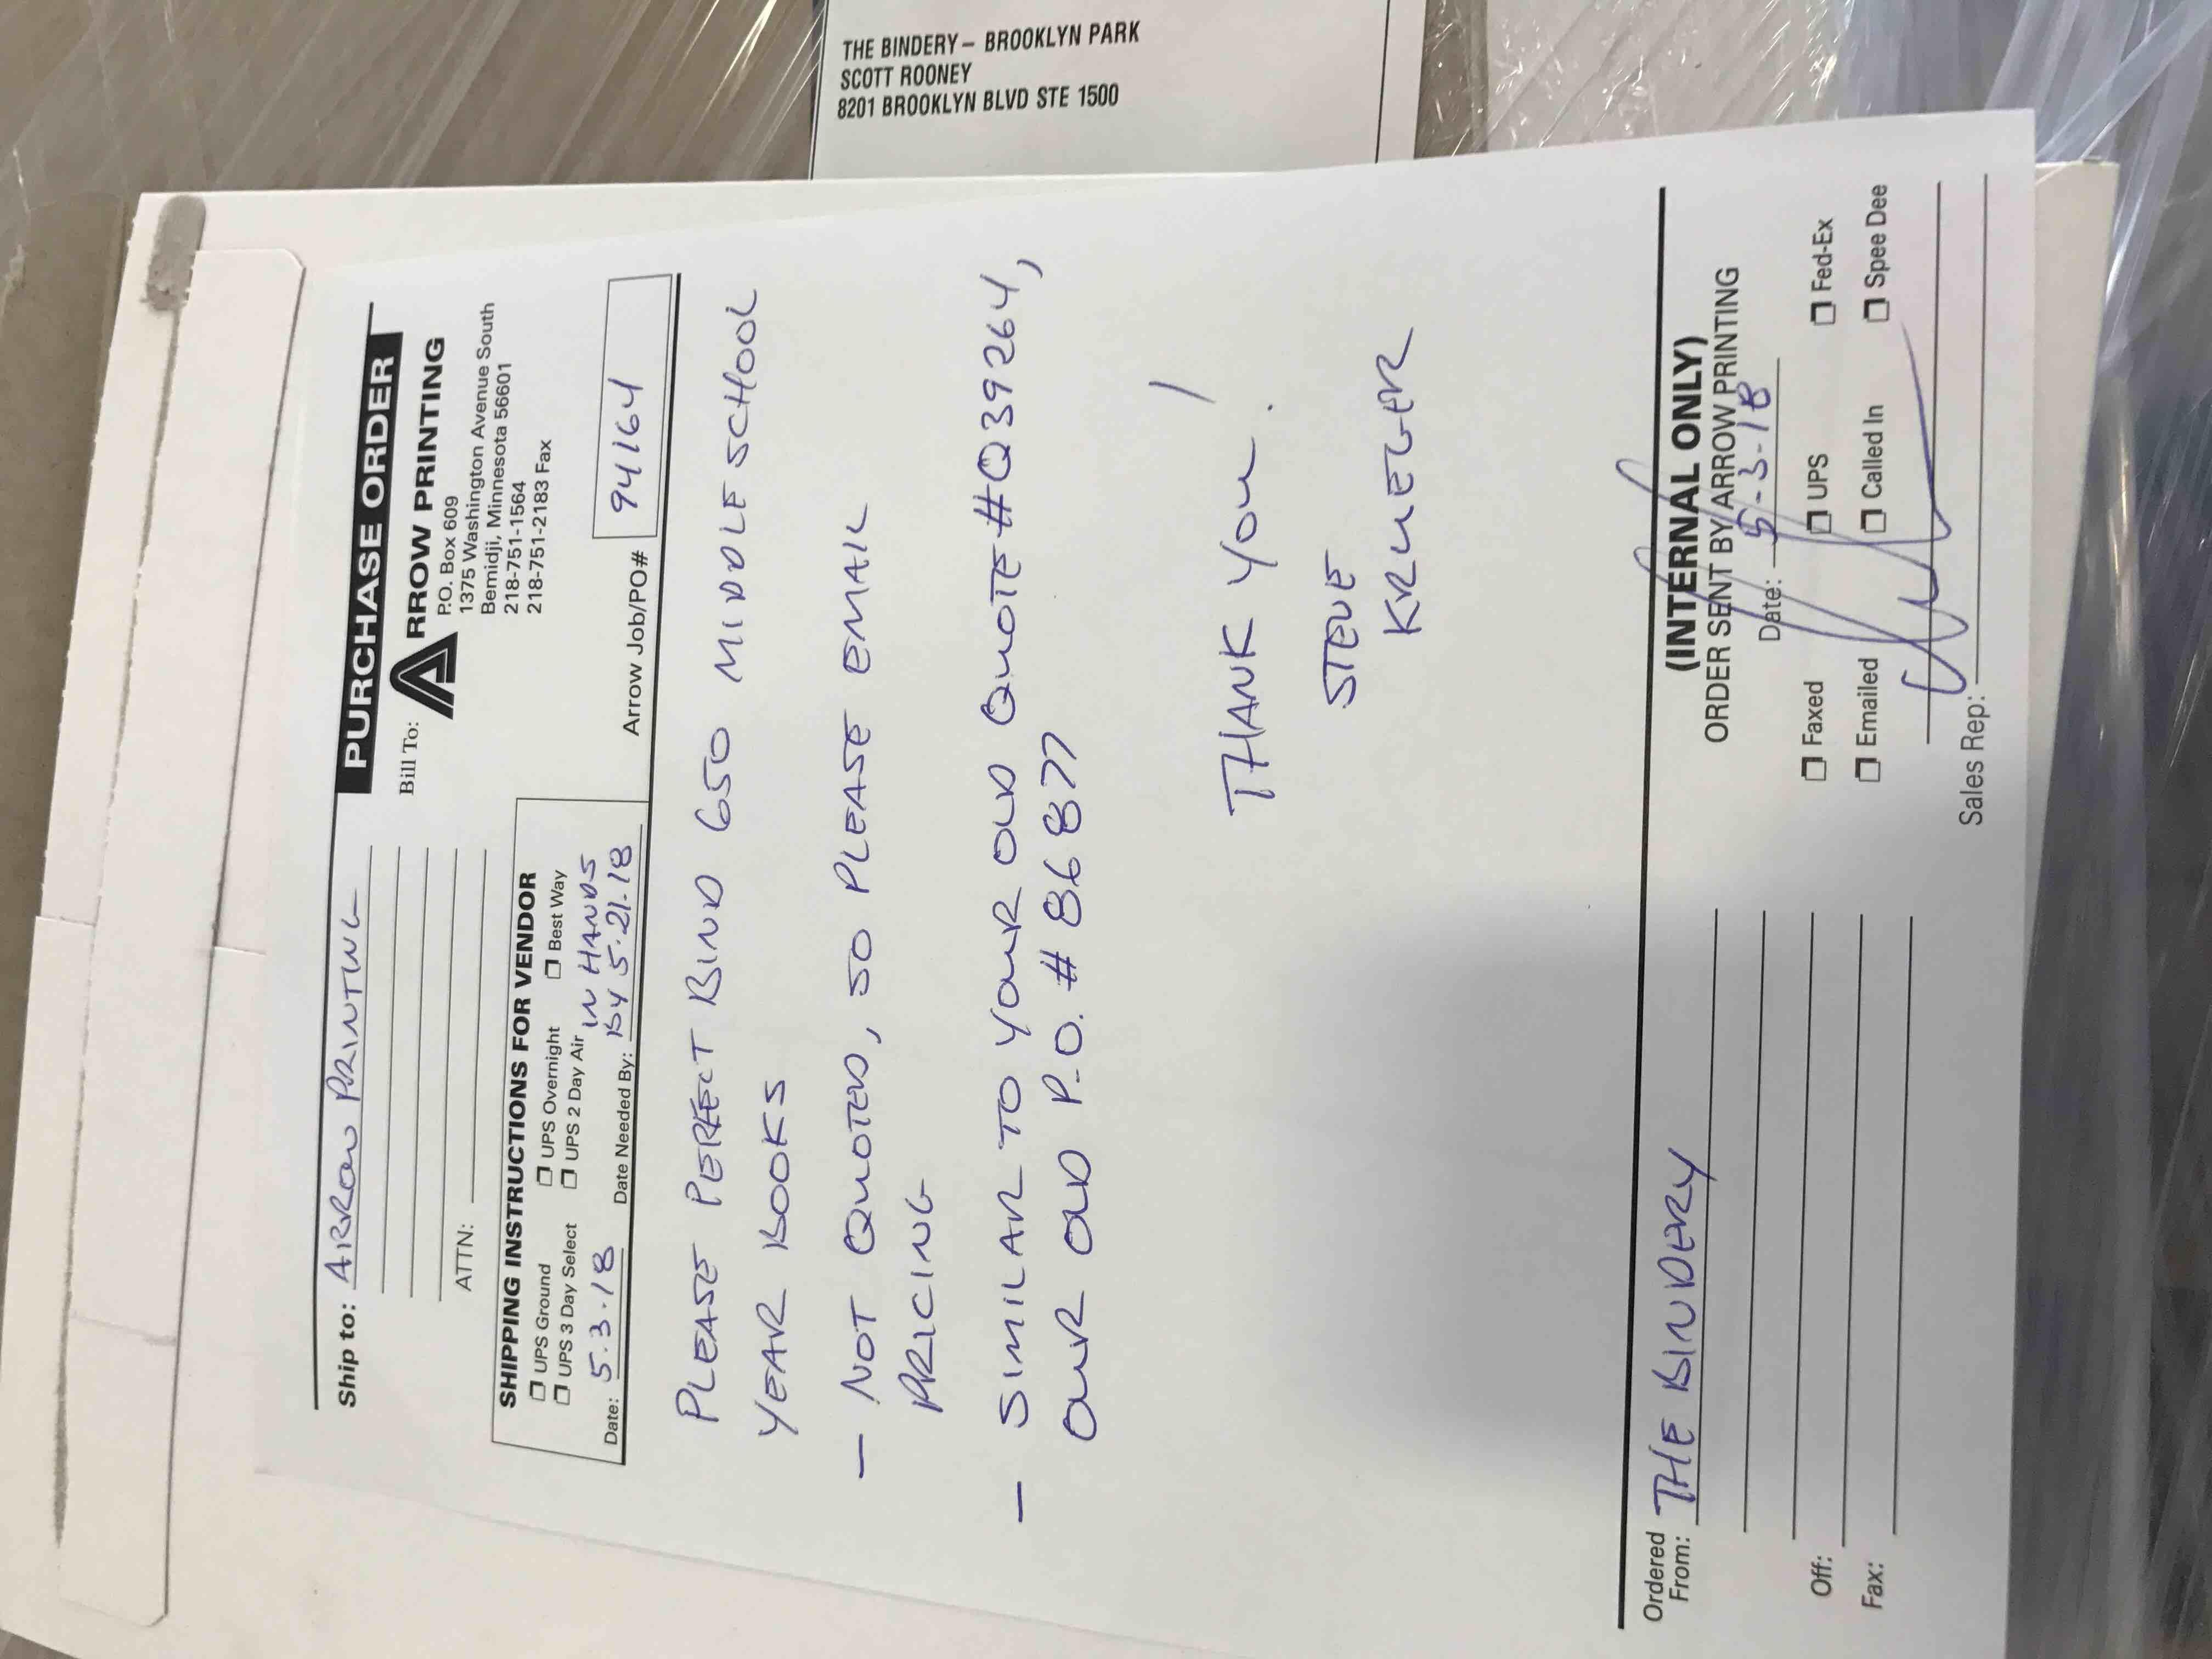 THE BINDERY – BROOKLYN PARK
SCOTT ROONEY
8201 BROOKLYN BLVD STE 1500
Ship to: ARROW PRINTING
ATTN:
PURCHASE ORDER
Bill To:
ARROW PRINTING
P.O. Box 609
1375 Washington Avenue South
Bemidji, Minnesota 56601
218-751-1564
218-751-2183 Fax
SHIPPING INSTRUCTIONS FOR VENDOR
☐ UPS Ground ☐ UPS Overnight ☐ Best Way
☐ UPS 3 Day Select ☐ UPS 2 Day Air
IN HANDS
Date: 5.3.18 Date Needed By: BY 5.21.18
Arrow Job/PO# 94164
PLEASE PERFECT BIND 650 MIDDLE SCHOOL
YEAR BOOKS
– NOT QUOTED, SO PLEASE EMAIL
PRICING
– SIMILAR TO YOUR OLD QUOTE #Q39264,
OUR OLD P.O. # 86877
THANK YOU!
STEVE
KRUEGER
Ordered
From: THE BINDERY
Off:
Fax:
(INTERNAL ONLY)
ORDER SENT BY ARROW PRINTING
Date: 5-3-18
☐ Faxed ☐ UPS ☐ Fed-Ex
☐ Emailed ☐ Called In ☐ Spee Dee
Sales Rep: